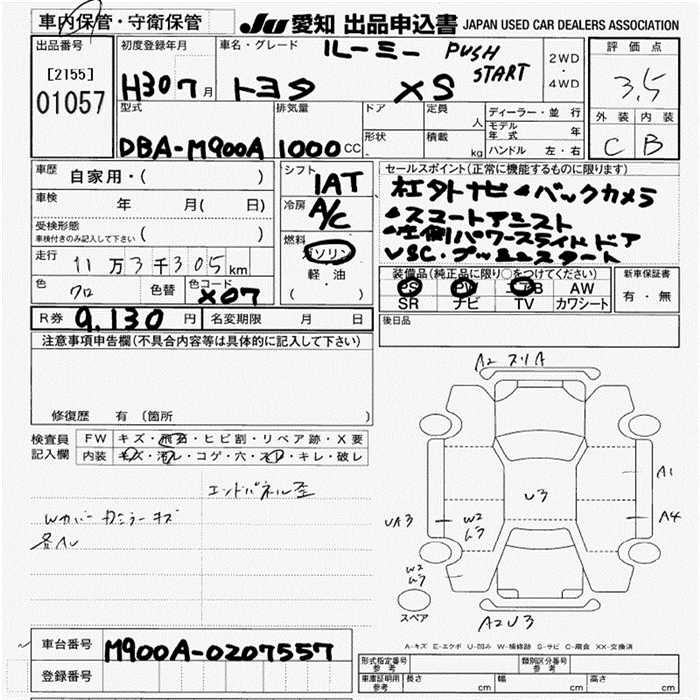 車内保管・守衛保管 JU 愛知 出品申込書 JAPAN USED CAR DEALERS ASSOCIATION
出品番号
[2155]
01057
初度登録年月
H30 7 月
車名・グレード
ルーミー PUSH START
トヨタ XS
2WD
・
4WD
評価点
3,5
外装 内装
C B
型式
DBA-M900A
排気量
1000 CC
ドア
形状
定員
人
積載
kg
ディーラー・並行
モデル年式 年
ハンドル 左・右
車歴
自家用・( )
車検
年 月( 日)
受検形態
車検付きのみ記入して下さい ( )
走行
11 万 3 千 305 km
色
クロ
色替
色コード
X07
シフト
IAT
冷房
A/C
燃料
ガソリン
軽・油
( )
セールスポイント(正常に機能するものに限ります)
社外ナビ・バックカメラ
・スマートアシスト
・左側パワースライドドア
VSC・プッシュスタート
装備品(純正品に限り○をつけてください)
PS PW エアB AW
SR ナビ TV カワシート
新車保証書
有・無
R券 9,130 円
名変期限 月 日
後日品
注意事項申告欄(不具合内容等は具体的に記入して下さい)
修復歴 有 (箇所
検査員
記入欄
FW キズ・飛石・ヒビ割・リペア跡・X要
内装 キズ・汚レ・コゲ・穴・スレ・キレ・破レ
エンドパネル歪
Wカバー カミラーキズ
各AU
A2 スリA
U3
A1
A4
UA3
W2
W2
スペア
A2U3
A-キズ E-エクボ U-凹み W-補修跡 S-サビ C-腐食 XX-交換済
車台番号 M900A-0207557
登録番号
形式指定番号
参考
類別区分番号
参考
車庫証明用
参考
長さ cm 幅 cm 高さ cm